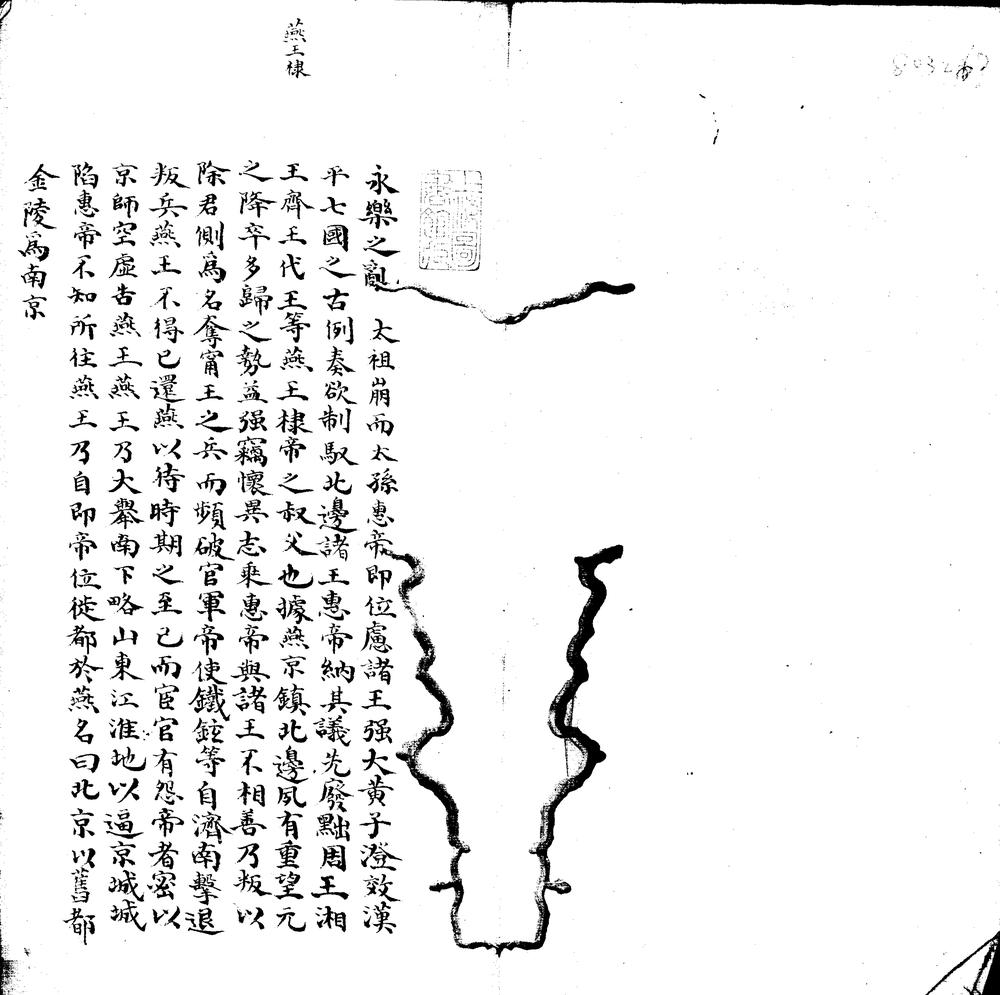 燕王棣
永樂之亂　太祖崩而太孫惠帝即位慮諸王强大黄子澄效漢
平七國之古例奏欲制馭北邊諸王惠帝納其議先廢黜周王湘
王齊王代王等燕王棣帝之叔父也據燕京鎮北邊夙有重望元
之降卒多歸之勢益强竊懷異志乘惠帝與諸王不相善乃叛以
除君側爲名奪甯王之兵而頻破官軍帝使鐵鉉等自濟南擊退
叛兵燕王不得已還燕以待時期之至已而宦官有怨帝者密以
京師空虛告燕王燕王乃大舉南下略山東江淮地以逼京城城
陷惠帝不知所往燕王乃自即帝位徙都於燕名曰北京以舊都
金陵爲南京